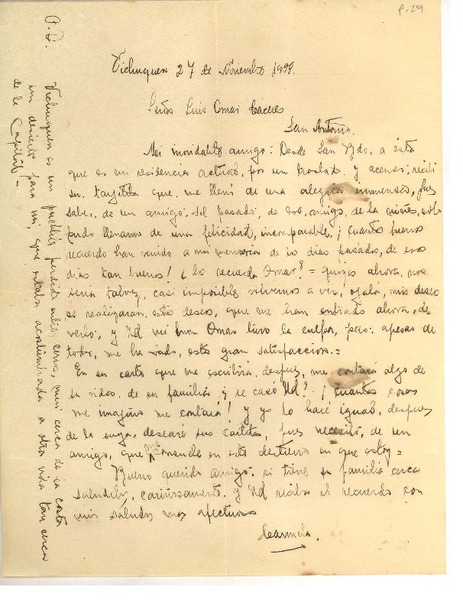 p. 29
Vichuquen 27 de Noviembre 19
Señor Luis Omar Caceres
San Antonio.
Mi inolvidable amigo: Desde San Fdo. a ésta
que es mi residencia actual, por un traslado y ascenso, recibí
su tarjetita que me llenó de una alegría inmensa, pues
saber, de un amigo, del pasado, de ese, amigo, de la
puede llenarnos de una felicidad, incomparable, ¡cuanto buenos
recuerdo han venido a mi memoria de los días pasado, de esos
días tan buenos! ¿lo recuerda Omar? = quizás ahora, nos
sería talvez, casi imposible volvernos a ver, ojalá, mis deseos
se realizaran, estos deseos, que me han entrado ahora, de
verlo, y Ud mi buen Omar tuvo la culpa, pero: apesar de
todo, me ha dado, esta gran satisfacción.=
En su carta que me escribirá, después, me contara algo de
su vida. de su familia y se casó Ud! ¡Cuantas cosas
me imagino me contará! y yo lo haré igual, despues
de la suya, desearé sus cartitas, pues necesito, de un
amigo, que en este destierro en que estoy=
Bueno querido amigo, si tiene su familia cerca
saludelos, cariñosamente y Ud reciba el recuerdo con
mis saludos mas afectuosos
Carmela.
P.D. Vichuquen es un pueblito perdido entre cerros, muy cerca de la costa
un destierro para mi que estaba acostumbrada a otra vida tan cerca
de la Capital=